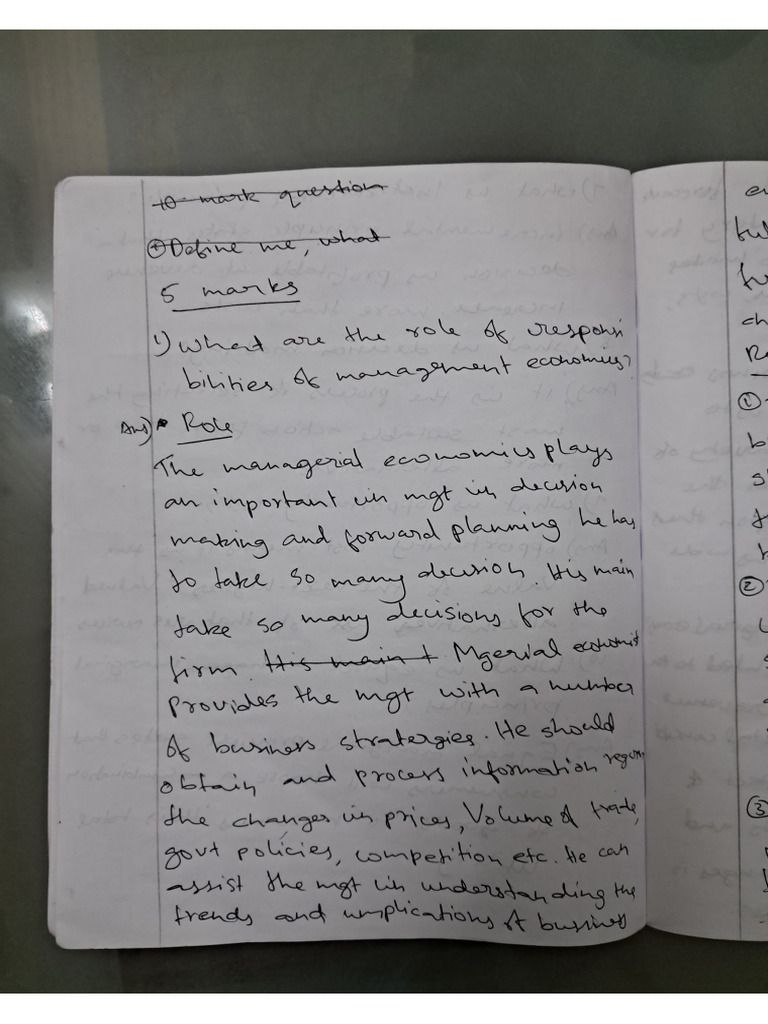 10 mark question
① Define me, what
5 marks
1) What are the role of responsi
bilities of management economics?
Ans) • Role
The managerial economics plays
an important in mgt in decision
making and forward planning he has
to take so many decision. His main
take so many decisions for the
firm. His main t Mgerial economist
provides the mgt with a number
of business stratergies. He should
obtain and process information regarn
the changes in prices, Volume of trade,
govt policies, competition etc. He can
assist the mgt in understanding the
trends and implications of business
①
②
③